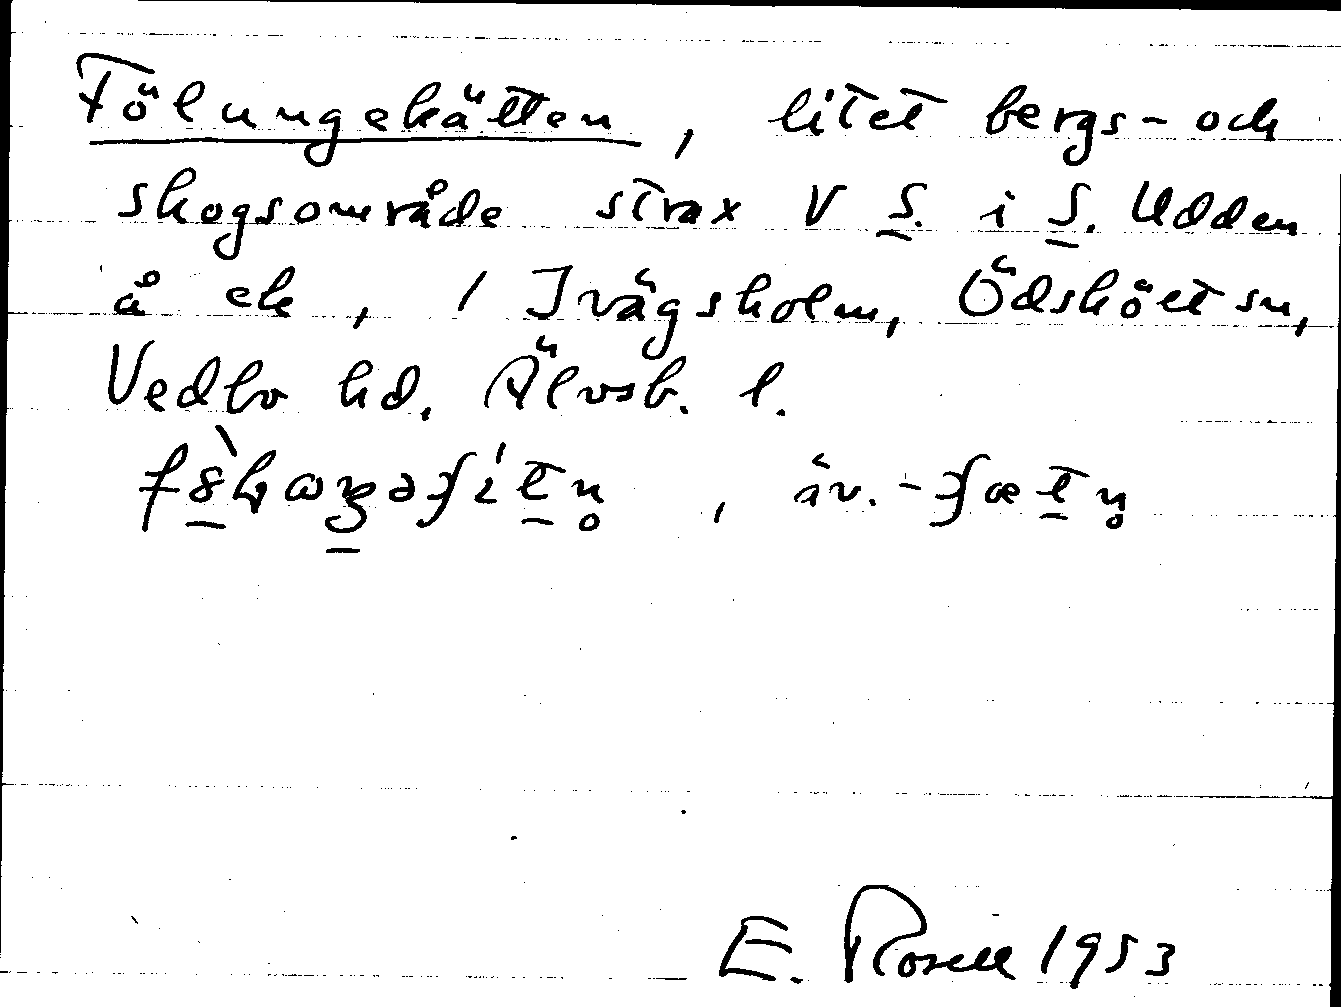 Fölungekätten, litet bergs- och
skogsområde strax V S. i S. Udden
å ek, / Ivägsholm, Ödskölt sn,
Vedbo hd. Älvsb. l.
, äv.
E. Rosell 1953